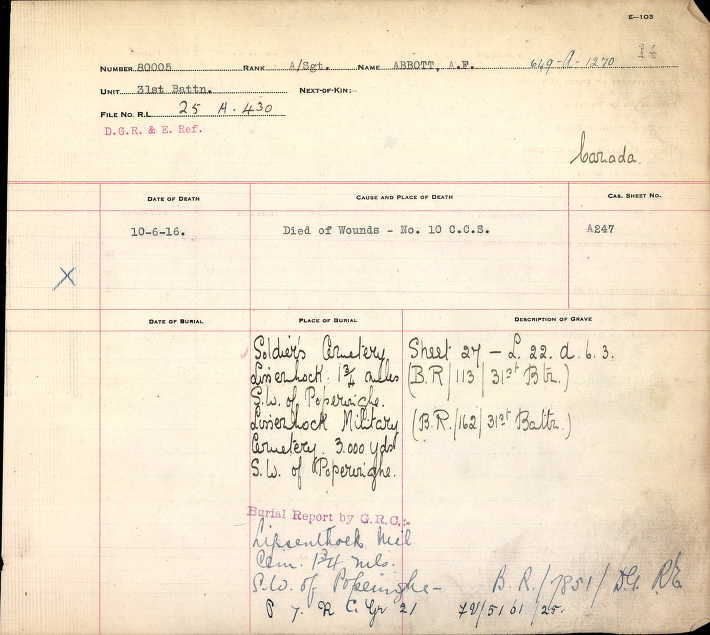 E—103
14
NUMBER 80005 RANK A/Sgt. NAME ABBOTT, A.F. 649-A-1270
UNIT 31st Battn. NEXT-OF-KIN:
FILE NO. R.L. 25 A. 430
D.G.R. & E. Ref.
Canada.
DATE OF DEATH CAUSE AND PLACE OF DEATH CAS. SHEET NO.
10-6-16. Died of Wounds - No. 10 C.C.S. A247
X
DATE OF BURIAL PLACE OF BURIAL DESCRIPTION OF GRAVE
Soldier's Cemetery Sheet 27 - L. 22. d. 6. 3.
Lissenhock. 1¾ miles (B.R/113/31st Btn.)
S.W. of Poperinghe.
Lissenhock Military (B.R./162/31st Battn.)
Cemetery. 3.000 yds
S.W. of Poperinghe.
Burial Report by G.R.C:-
Lijssenthoek Mil
Cem. 1¾ mls.
S.W. of Popeinghe- B.R./7851/D.G. R/E
P 7. R C. Gr 21 7V/5101/25.